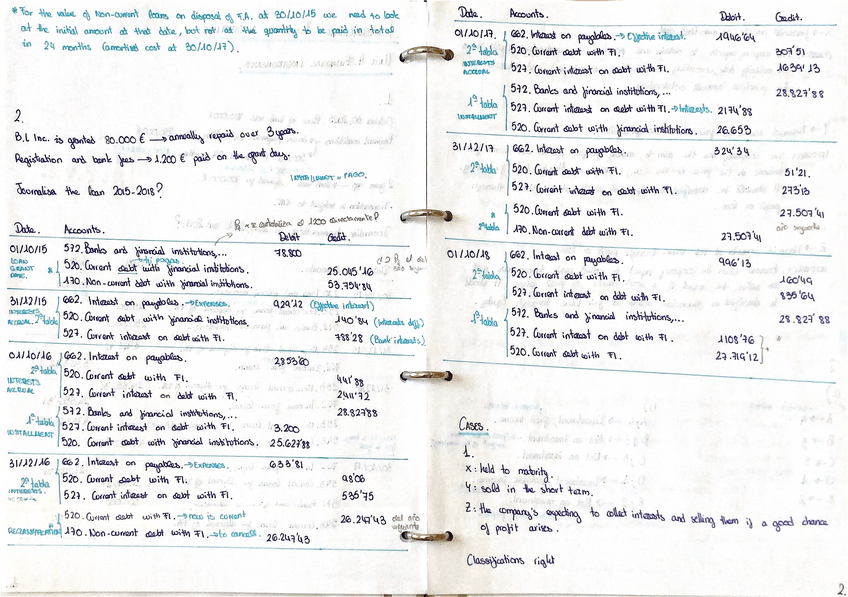 * For the value of Non-current loans on disposal of F.A. at 30/10/15 we need to look
at the initial amount at that date, but not at the quantity to be paid in total
in 24 months (amortised cost at 30/10/17).
2.
B.L Inc. is granted 80.000 € → annually repaid over 3 years.
Registration and bank fees → 1.200 € paid on the grant day.
INSTALLMENT = PAGO.
Journalise the loan 2015-2018?
Date. Accounts. Debit Credit.
01/10/15 572. Banks and financial institutions,... 78.800
LOAN GRANT DATE. 520. Current debt with financial institutions. 25.045'16
170. Non-current debt with financial institutions. 53.754'84
31/12/15 662. Interest on payables. → EXPENSES. 929'12 (Effective interest)
INTERESTS ACCRUAL. 2ª tabla 520. Current debt with financial institutions. 140'84 (Interests diff)
527. Current interest on debt with FI. 788'28 (Bank interests)
01/10/16 662. Interest on payables. 2853'60
2ª tabla 520. Current debt with FI. 441'88
INTERESTS ACCRUAL 527. Current interest on debt with FI. 2411'72
1ª tabla 572. Banks and financial institutions,... 28.827'88
527. Current interest on debt with FI. 3.200
INSTALLMENT 520. Current debt with financial institutions. 25.627'88
31/12/16 662. Interest on payables. → EXPENSES. 633'81
2ª tabla 520. Current debt with FI. 98'06
INTERESTS 527. Current interest on debt with FI. 535'75
520. Current debt with FI. → now is current 26.247'43 del año siguiente
RECLASSIFICATION 170. Non-current debt with FI. → to cancel. 26.247'43
Date. Accounts. Debit. Credit.
01/10/17 662. Interest on payables. → Effective interest. 1946'64
2ª tabla 520. Current debt with FI. 307'51
INTERESTS ACCRUAL 527. Current interest on debt with FI. 1639'13
572. Banks and financial institutions,... 28.827'88
1ª tabla 527. Current interest on debt with FI. → Interests. 2174'88
INSTALLMENT 520. Current debt with financial institutions. 26.653
31/12/17 662. Interest on payables. 324'34
2ª tabla 520. Current debt with FI. 51'21.
527. Current interest on debt with FI. 273'13
520. Current debt with FI. 27.507'41
2ª tabla 170. Non-current debt with FI. 27.507'41 año siguiente
01/10/18 662. Interest on payables. 996'13
2ª tabla 520. Current debt with FI. 160'49
527. Current interest on debt with FI. 835'64
1ª tabla 572. Banks and financial institutions,... 28.827'88
527. Current interest on debt with FI. 1108'76
520. Current debt with FI. 27.719'12
CASES.
1.
X: held to maturity.
Y: sold in the short term.
Z: the company's expecting to collect interests and selling them if a good chance
of profit arises.
Classifications right
2.